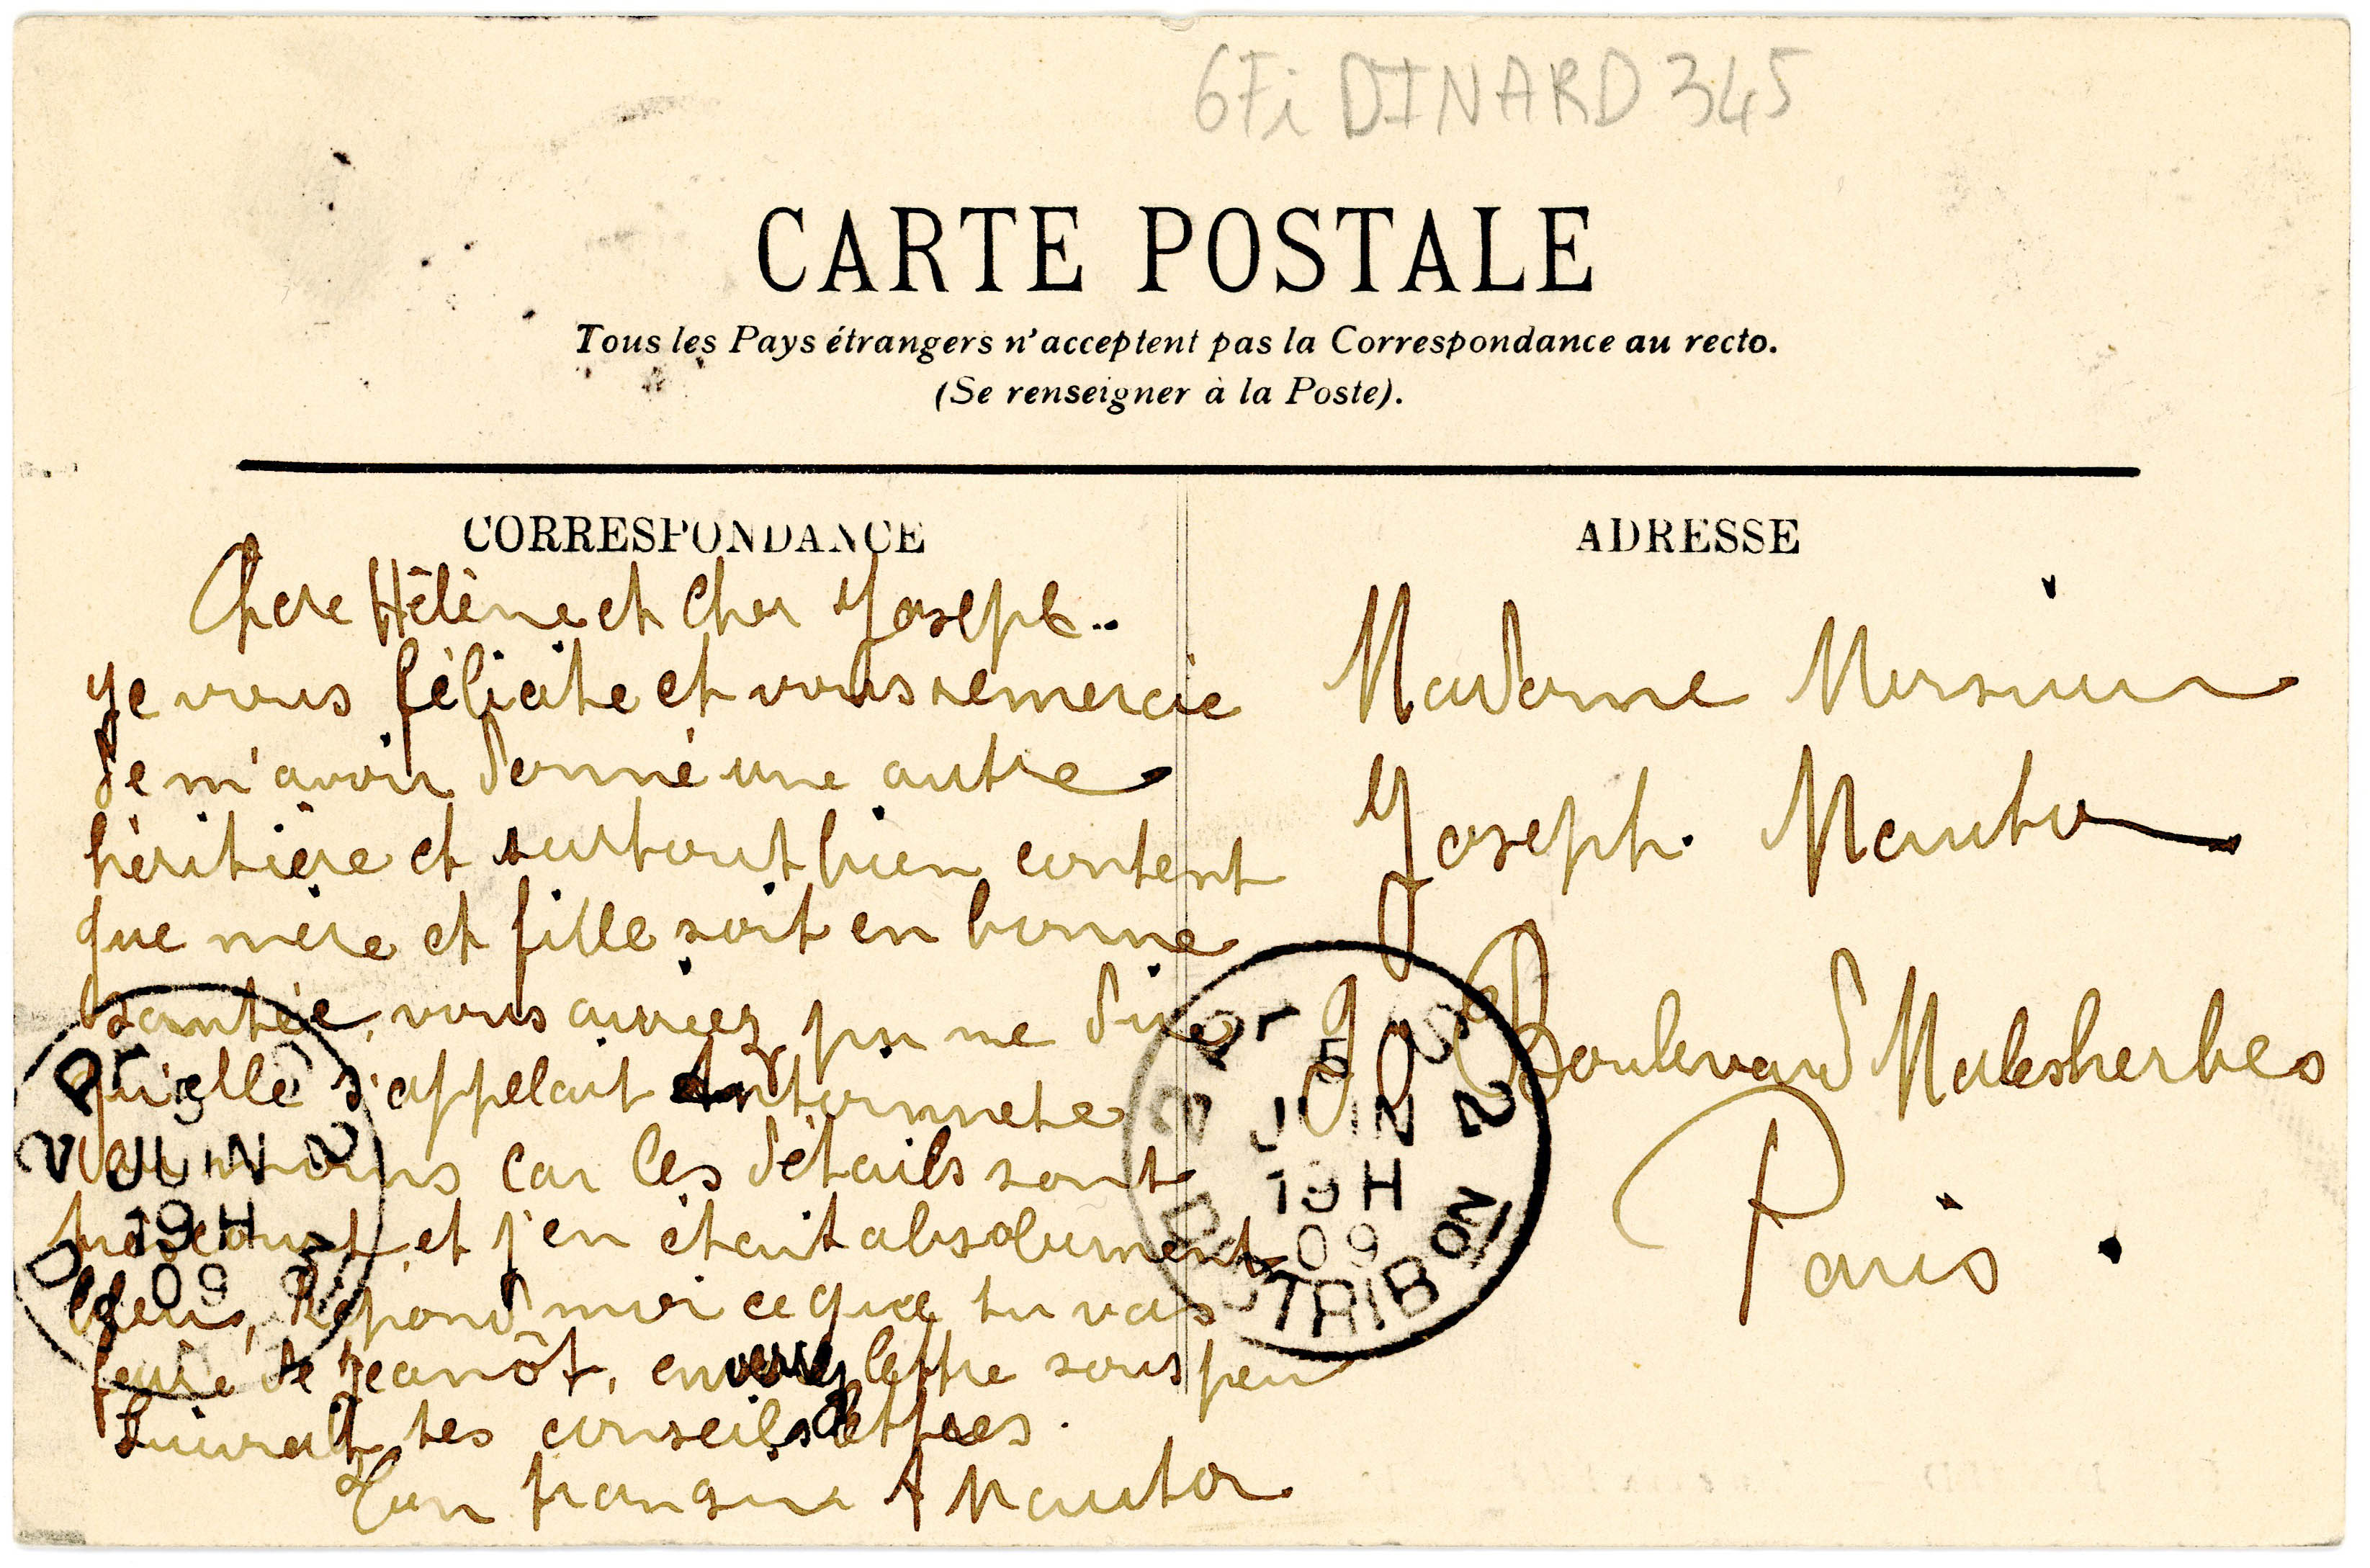 6Fi DINARD 345
CARTE POSTALE
Tous les Pays étrangers n'acceptent pas la Correspondance au recto.
(Se renseigner à la Poste).
CORRESPONDANCE
Chere Hélène et Cher Joseph..
je vous félicite et vous remercie
de m'avoir donné une autre
héritière et surtout bien content
que mère et fille soit en bonne
santée, vous auriez pu me dire
qu'elle s'appelait Antoinnete
car les détails sont
et j'en était absolument
Répond moi ce que tu vas
de Jeanôt, lettre sous peu
tes conseils lettres.
Ton frangin A Mantor
ADRESSE
Madame Monsieur
Joseph. Mantor
90 Boulevard Malesherbes
Paris.
5
JUIN
19H
09
DISTRIBON
2 JUIN 2
19H
09